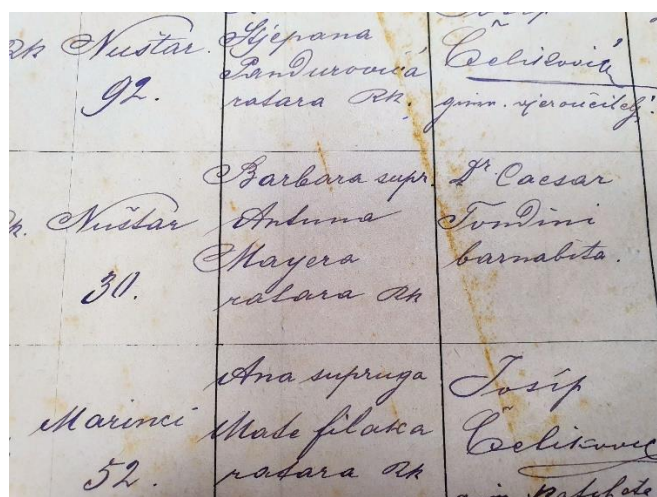 Rk Nuštar.
92.
Stjepana
Pandurovića
ratara Rk.
Josip
Čeliković
gimn. vjeroučitelj.
Nuštar
30.
Barbara supr.
Antuna
Mayera
ratara Rk
Dr Caesar
Tondini
barnabita.
Marinci
52.
Ana supruga
Mate Filaka
ratara Rk
Josip
Čeliković